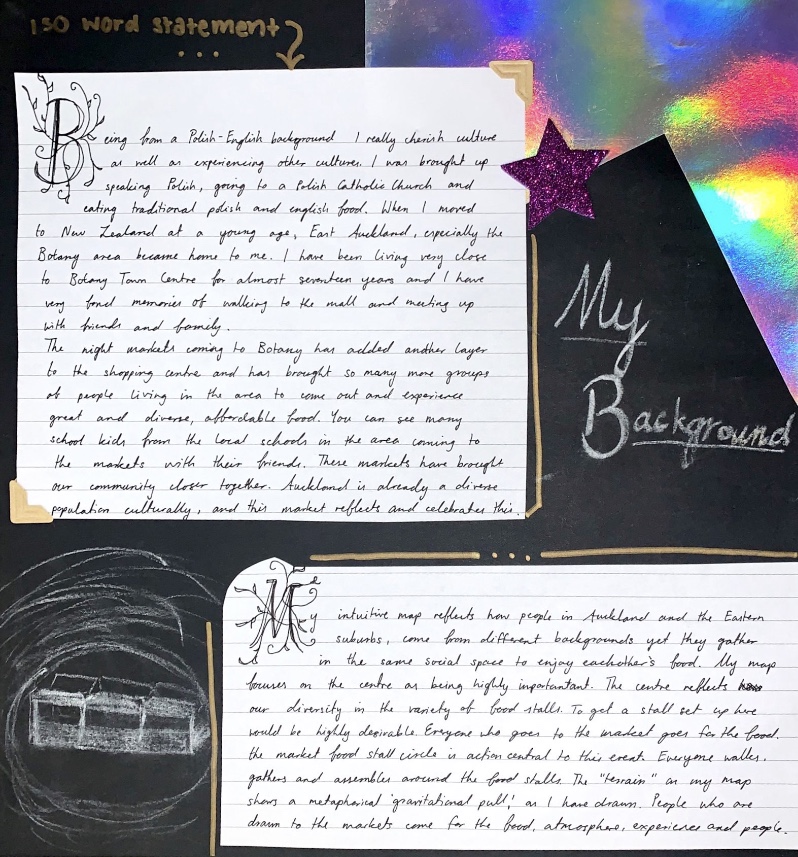 150 word statement
...
Being from a Polish-English background I really cherish culture
as well as experiencing other cultures. I was brought up
speaking Polish, going to a Polish Catholic Church and
eating traditional polish and english food. When I moved
to New Zealand at a young age, East Auckland, especially the
Botany area became home to me. I have been living very close
to Botany Town Centre for almost seventeen years and I have
very fond memories of walking to the mall and meeting up
with friends and family.
The night markets coming to Botany has added another layer
to the shopping centre and has brought so many more groups
of people living in the area to come out and experience
great and diverse, affordable food. You can see many
school kids from the local schools in the area coming to
the markets with their friends. These markets have brought
our community closer together. Auckland is already a diverse
population culturally, and this market reflects and celebrates this.
My
Background
My intuitive map reflects how people in Auckland and the Eastern
suburbs, come from different backgrounds yet they gather
in the same social space to enjoy eachother's food. My map
focuses on the centre as being highly inportantant. The centre reflects
our diversity in the variety of food stalls. To get a stall set up here
would be highly desirable. Everyone who goes to the market goes for the food.
the market food stall circle is action central to this event. Everyone walks,
gathers and assembles around the food stalls. The "terrain" on my map
shows a metaphorical 'gravitational pull', as I have drawn. People who are
drawn to the markets come for the food, atmosphere, experience and people.